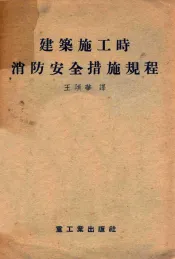 建築施工時
消防安全措施規程
王 譯
重工業出版社